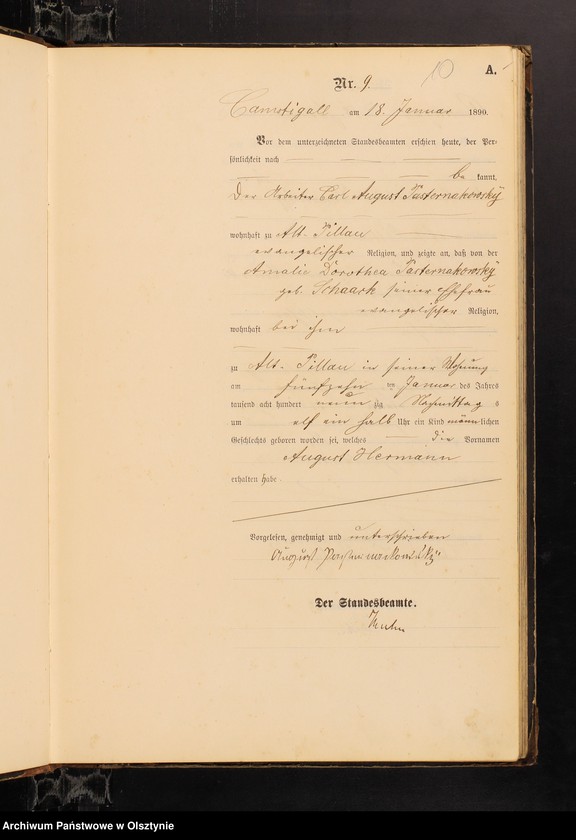 10
A.
Nr. 9.
Camstigall am 18. Januar 1890.
Vor dem unterzeichneten Standesbeamten erschien heute, der Per-
sönlichkeit nach
be kannt,
der Arbeiter Carl August Pasternakowsky
wohnhaft zu Alt-Pillau
evangelischer Religion, und zeigte an, daß von der
Amalie Dorothea Pasternakowsky
geb. Schaack seiner Ehefrau
evangelischer Religion,
wohnhaft bei ihm
zu Alt-Pillau in seiner Wohnung
am fünfzehn ten Januar des Jahres
tausend acht hundert neun zig Nachmittag s
um elf ein halb Uhr ein Kind männlichen
Geschlechts geboren worden sei, welches die Vornamen
August Hermann
erhalten habe.
Vorgelesen, genehmigt und unterschrieben
August
Der Standesbeamte.
Archiwum Państwowe w Olsztynie